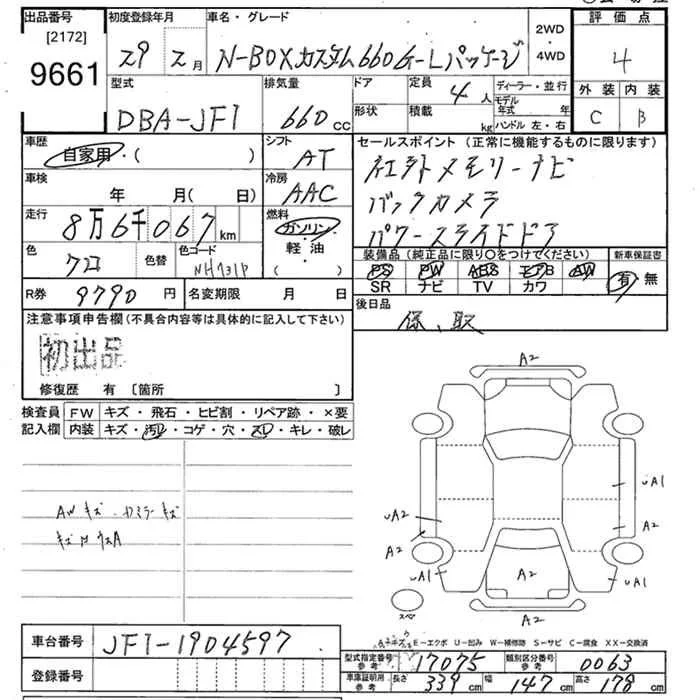 出品番号
[2172]
9661
初度登録年月
29 2月
車名・グレード
N-BOXカスタム660G-Lパッケージ
2WD
・
4WD
評価点
4
外装 内装
C B
型式
DBA-JF1
排気量
660 cc
ドア
形状
定員
4人
積載
kg
ディーラー・並行
モデル
年式 年
ハンドル 左・右
車歴
自家用・( )
シフト
AT
セールスポイント (正常に機能するものに限ります)
社外メモリーナビ
バックカメラ
パワースライドドア
車検
年 月( 日)
冷房
AAC
走行
8万6千067km
燃料
ガソリン
・
軽・油
( )
色
クロ
色替
色コード
NH731P
装備品 (純正品に限り〇をつけてください)
PS PW ABS エアB AW
SR ナビ TV カワ
新車保証書
有・無
R券 9790円
名変期限 月 日
後日品
保、取
注意事項申告欄 (不具合内容等は具体的に記入して下さい)
初出品
修復歴 有 [箇所 ]
検査員
記入欄
FW キズ・飛石・ヒビ割・リペア跡・×要
内装 キズ・汚レ・コゲ・穴・スレ・キレ・破レ
AWキズ
A2
UA1
UA2
A2
A2
UA1
A2
UA1
A2
スペア
車台番号 JF1-1904597
登録番号
A-キズ E-エクボ U-凹み W-補修跡 S-サビ C-腐食 XX-交換済
型式指定番号
参考
17075
類別区分番号
参考
0063
車庫証明用
参考
長さ 339cm 幅 147cm 高さ 178cm